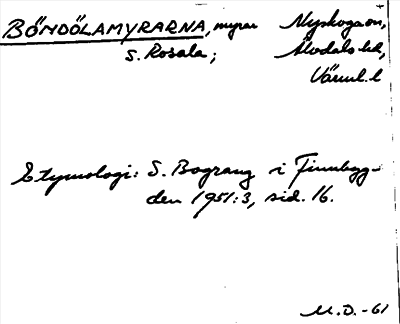 BÖNDÖLAMYRARNA, myrar Nyskoga sn,
S. Rosala; Älvdals hd,
Värml. l
Etymologi: S. Bograng i Finnbyg-
den 1951:3, sid. 16.
M.O.-61